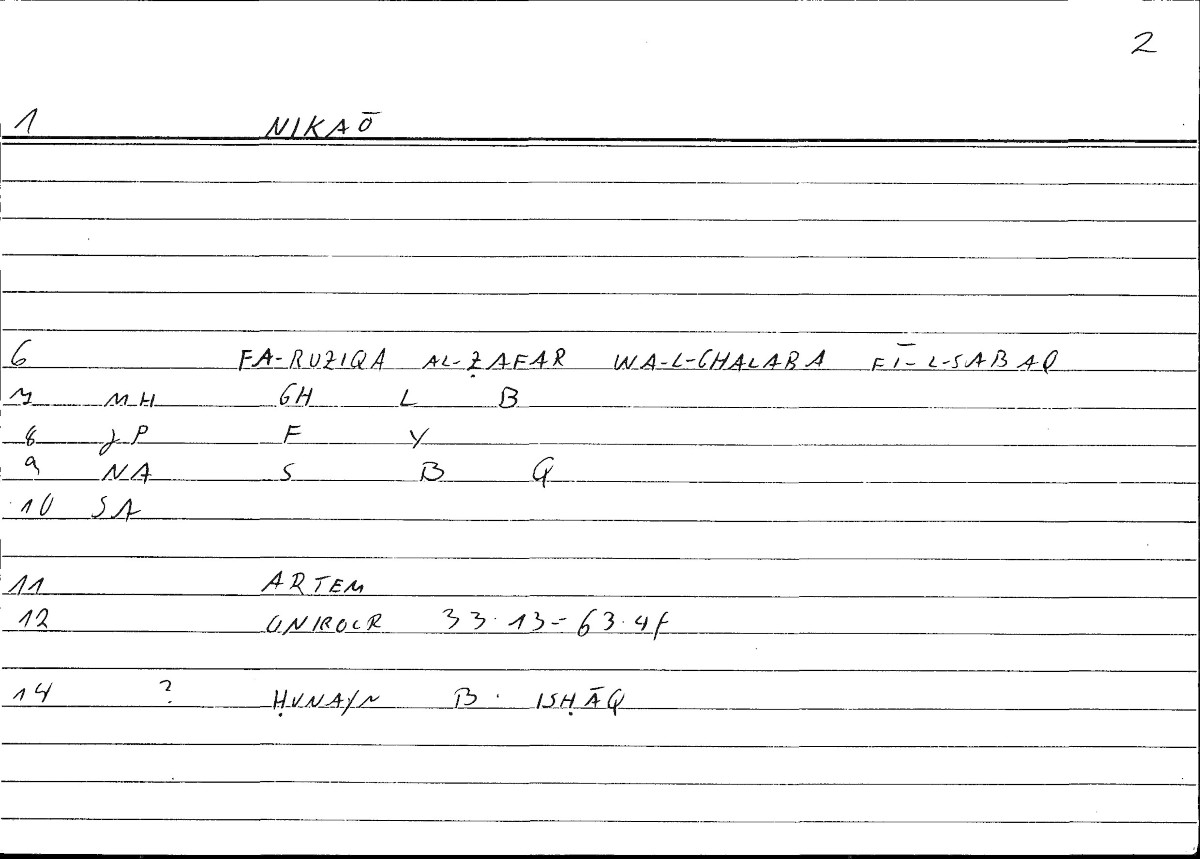 2
1 NIKAŌ
6 FA-RUZIQA AL-ẒAFAR WA-L-GHALABA FĪ-L-SABAQ
7 MH GH L B
8 JP F Y
9 NA S B Q
10 SA
11 ARTEM
12 ONIROCR 33.13-63.4f
14 ? ḤUNAYN B. ISḤĀQ